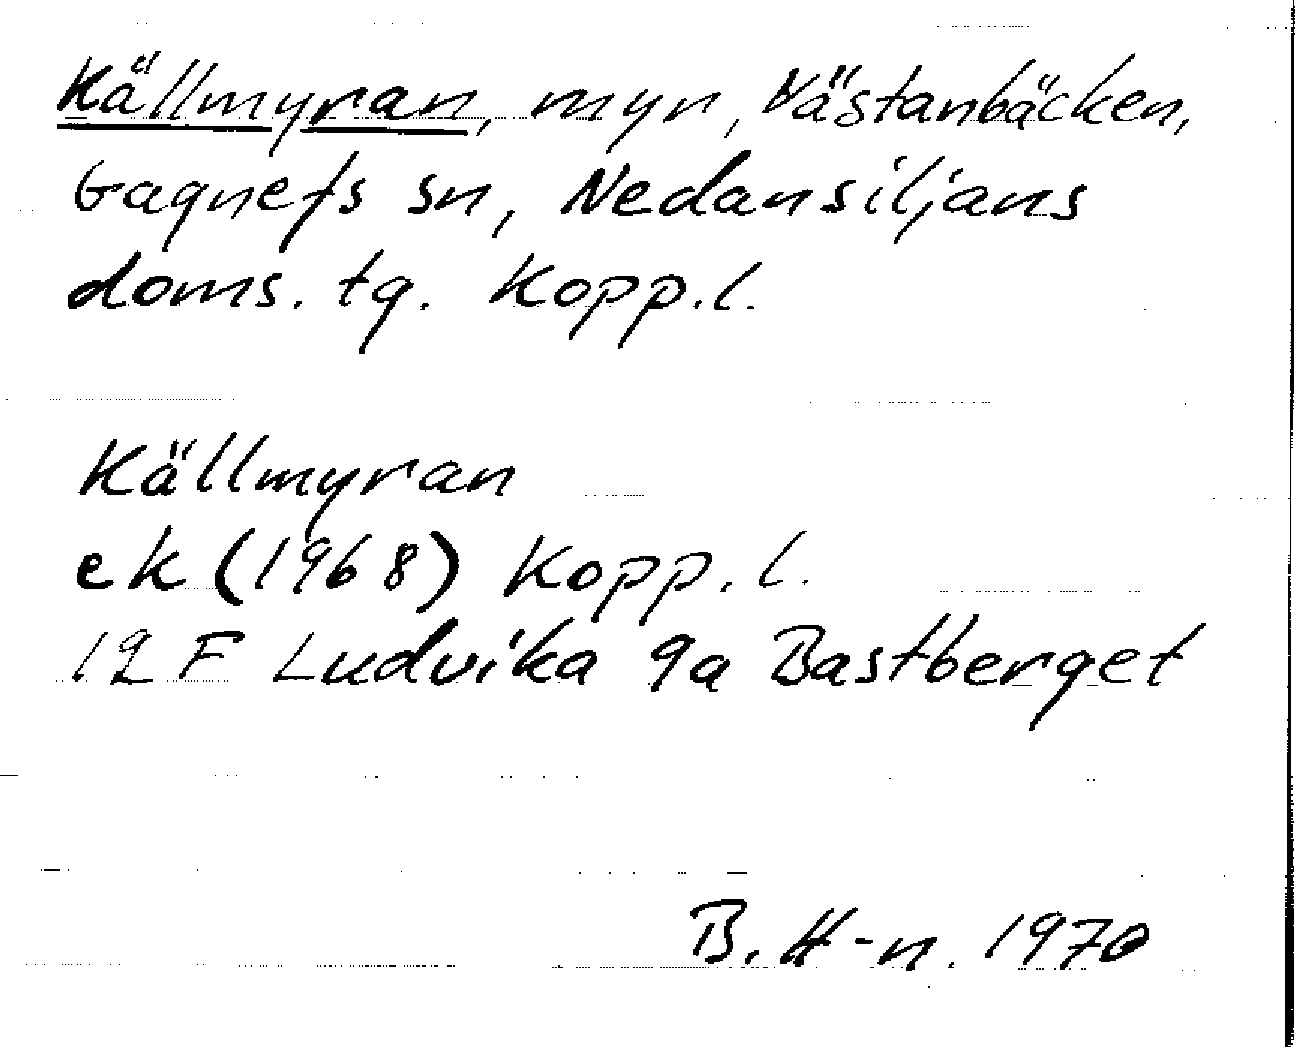 Källmyran, myr, Västanbäcken,
Gagnefs sn, Nedansiljans
doms. tg. Kopp.l.
Källmyran
ek (1968) Kopp. l.
12 F Ludvika 9a Bastberget
B. H-n. 1970